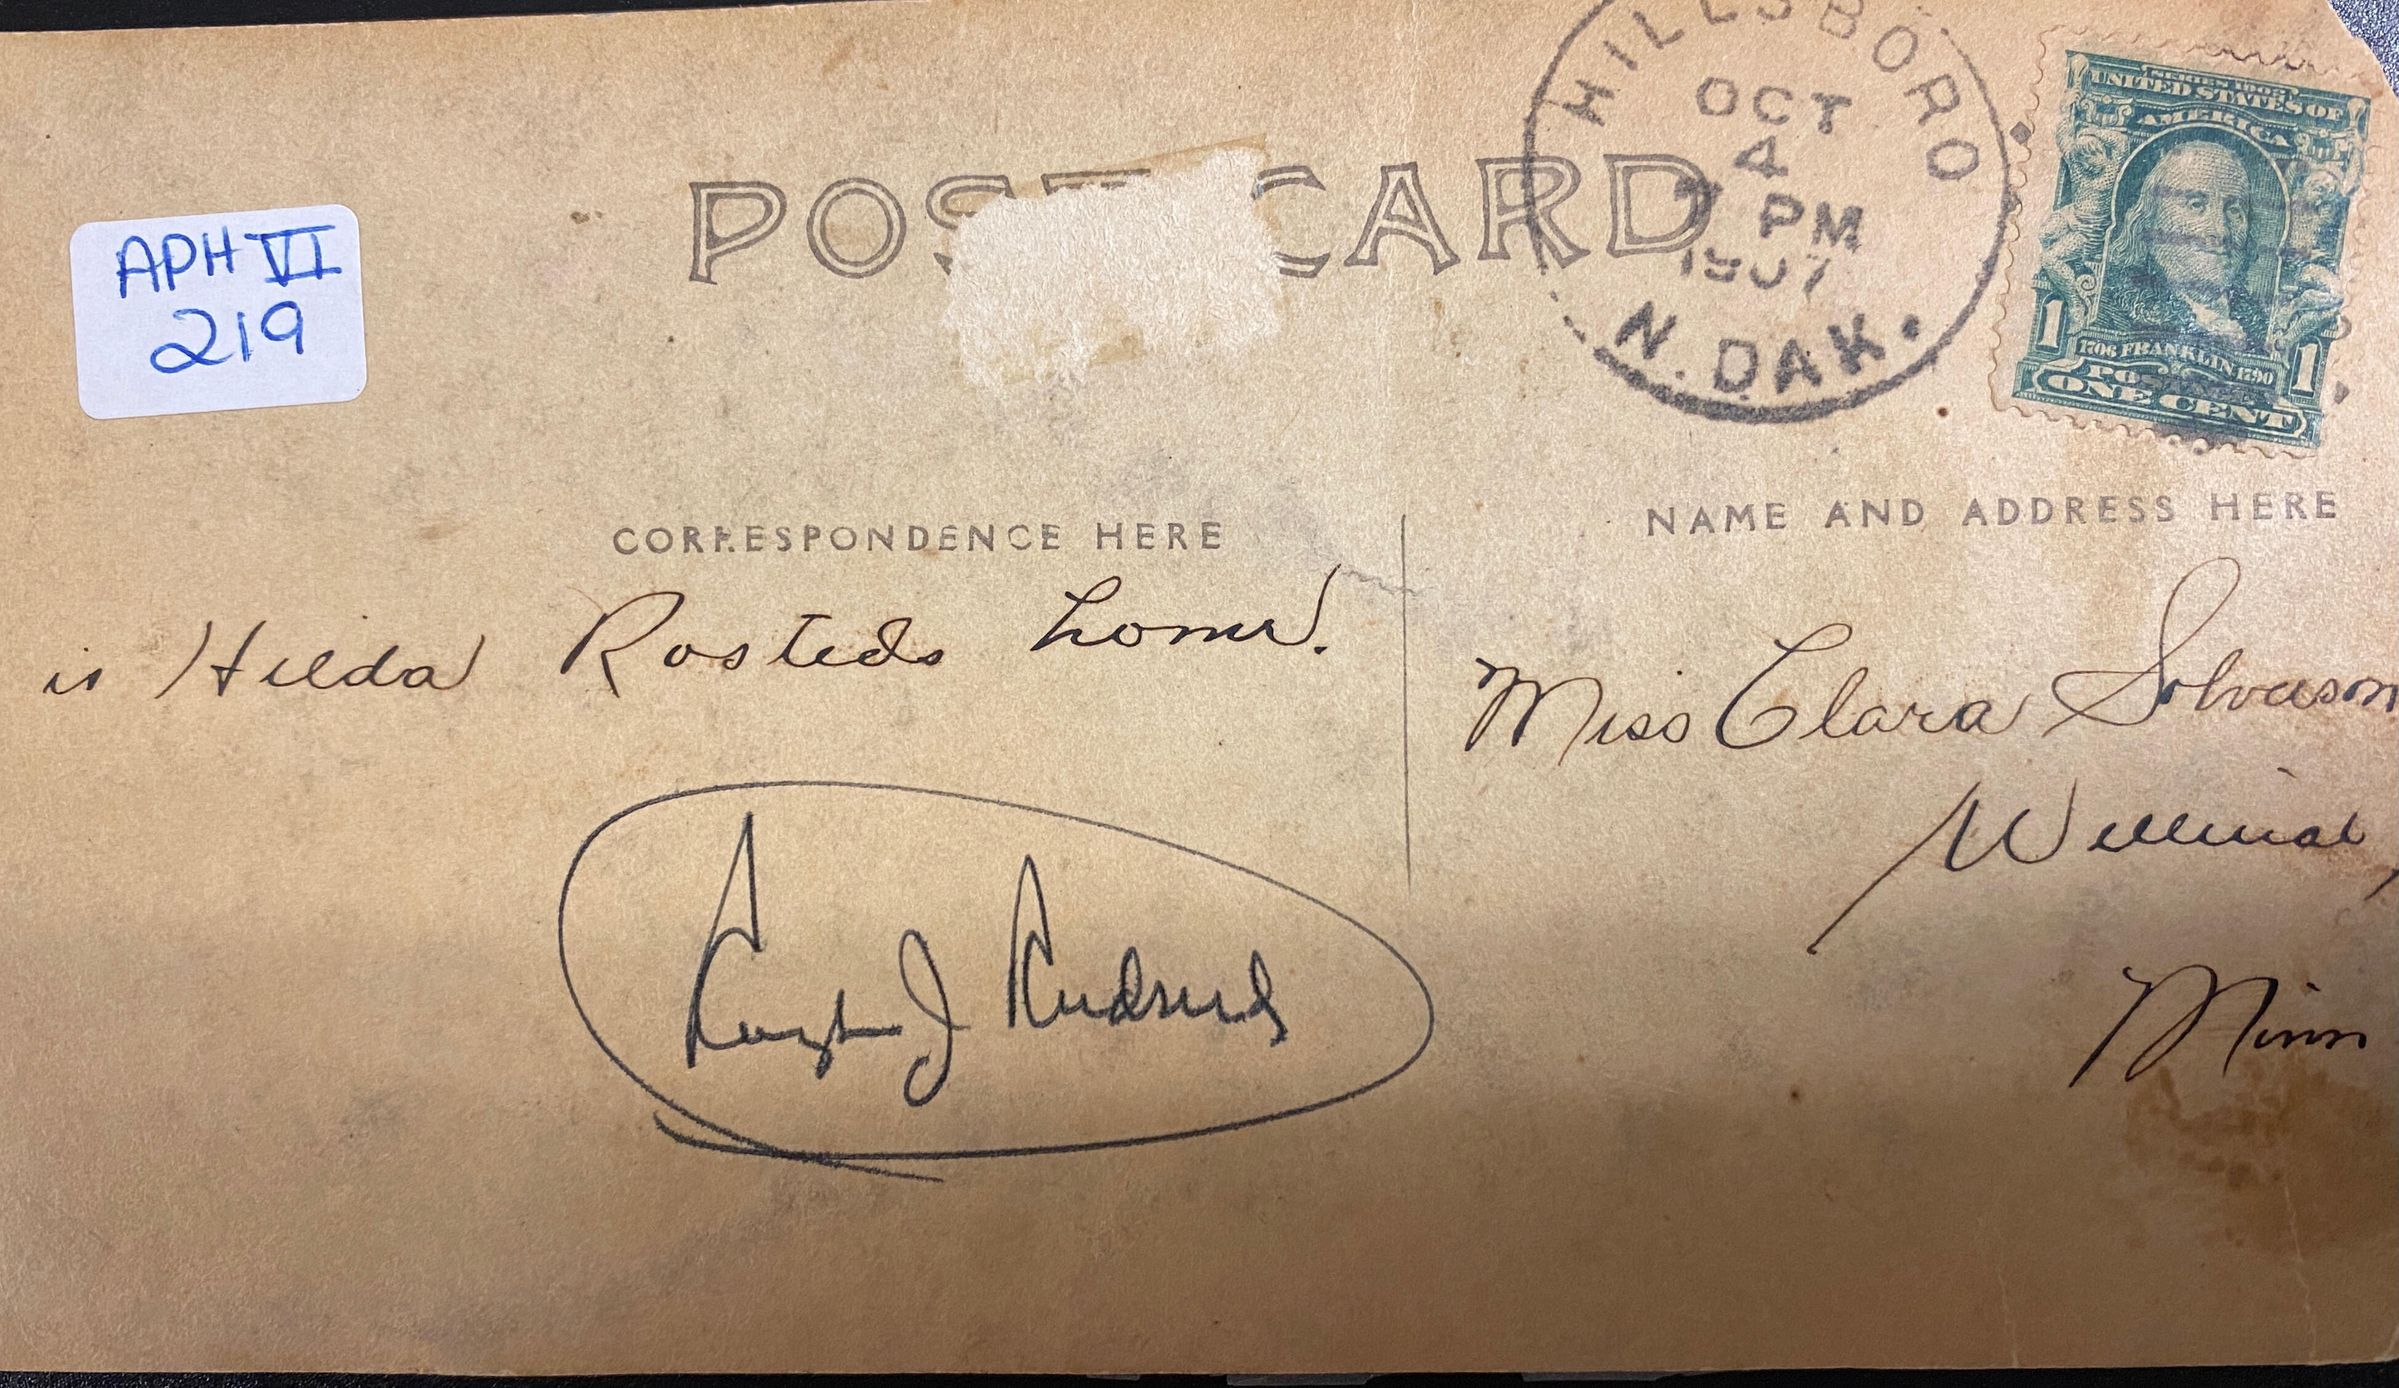 HILLSBORO
OCT
4
7 PM
1907
N. DAK.
SERIES 1902
UNITED STATES OF
AMERICA
1706 FRANKLIN 1790
1 1
POSTAGE
ONE CENT
APH VI
219
POST CARD
CORRESPONDENCE HERE
NAME AND ADDRESS HERE
is Hilda Rosteds home.
Miss Clara Solverson
Willmar,
Minn
J